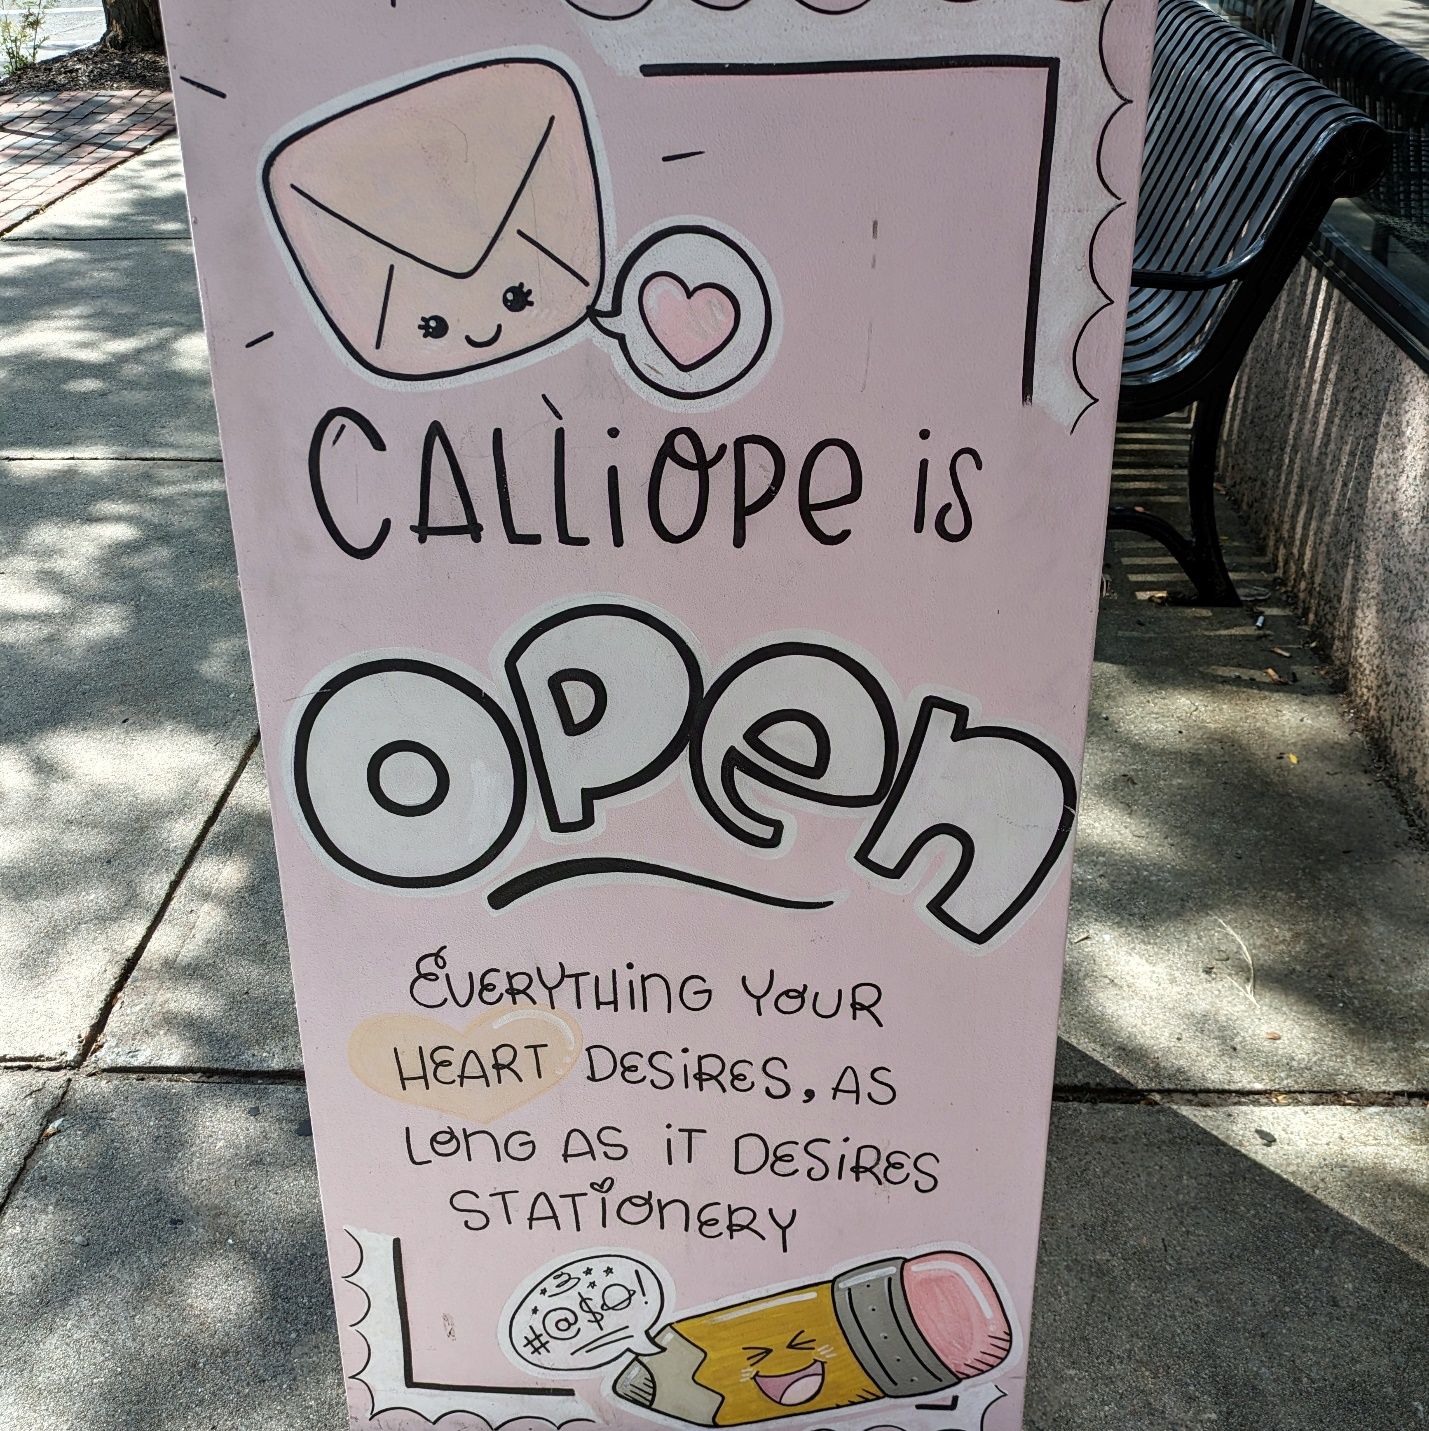 CALLiOPe is
OPen
EVERYTHiNG YOUR
HEART DESiRES, AS
LONG AS iT DESiRES
STATiONERY
#@$!